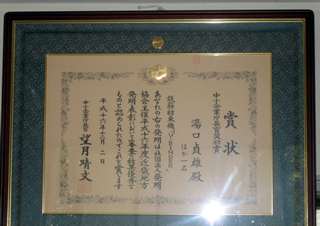 賞状
中小企業庁長官奨励賞
湯口貞雄殿
ほか一名
鉄筋結束機「U-BINDER」
あなたの右の発明は社団法人発明
協会主催平成十六年度近畿地方
発明表彰において審査の結果優秀な
ものと認められたのでこれを賞します
平成十六年十一月二日
中小企業庁長官
望月晴文